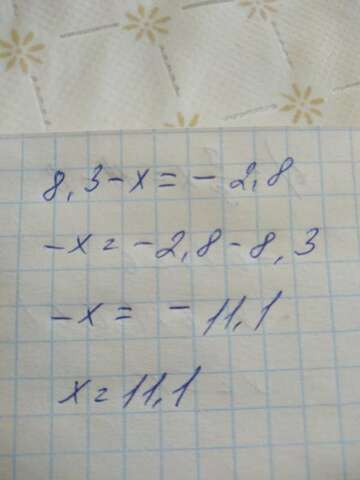 8,3-x=-2,8
-x=-2,8-8,3
-x= -11,1
x=11,1